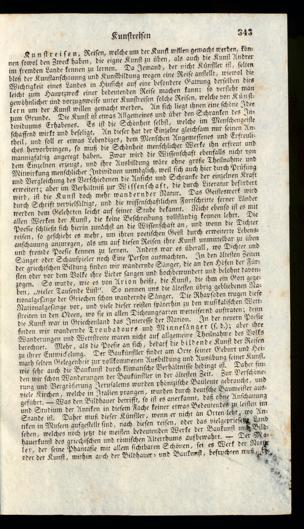 Kunstreisen 343
Kunstreisen, Reisen, welche um der Kunst willen gemacht werden, kön-
nen sowol den Zweck haben, die eigne Kunst zu üben, als auch die Kunst Andrer
im fremden Lande kennen zu lernen. Da Jemand, der nicht Künstler ist, selten
blos der Kunstanschauung und Kunstbildung wegen eine Reise anstellt, wiewol die
Wichtigkeit eines Landes in Hinsicht auf eine besondere Gattung derselben dies
leicht zum Hauptzweck einer bedeutenden Reise machen kann: so versteht man
gewöhnlicher und vorzugsweise unter Kunstreisen solche Reisen, welche von Künst-
lern um der Kunst willen gemacht werden. An sich liegt ihnen eine schöne Idee
zum Grunde. Die Kunst ist etwas Allgemeines und über den Schranken des In-
dividuums Erhabenes. Es ist die Schönheit selbst, welche im Menschenge-
schaffend wirkt und beseligt. An dieser hat der Einzelne gleichsam nur seinen An-
theil, und soll er etwas Lebendiges, dem Menschen Angemessenes und Erfreuli-
ches hervorbringen, so muß die Schönheit menschlicher Werke ihn erfreut und
mannigfaltig angeregt haben. Zwar wird die Wissenschaft ebenfalls nicht von
dem Einzelnen erzeugt, und ihre Ausbildung wäre ohne große Theilnahme und
Mitwirkung menschlicher Individuen unmöglich, weil sich auch hier durch Prüfung
und Vergleichung des Verschiedenen die Ansicht und Schranke der einzelnen Kraft
erweitert; aber im Verhältniß zur Wissenschaft, die durch Literatur befördert
wird, ist die Kunst doch mehr wandernder Natur. Das Gesetzwerk wird
durch Schrift vervielfältigt, und die wissenschaftlichen Fortschritte ferner Länder
werden dem Gelehrten leicht auf seiner Stube bekannt. Nicht ebenso ist es mit
allen Werken der Kunst, die keine Beschreibung vollständig kennen lehrt. Die
Poesie schließt sich hierin zunächst an die Wissenschaft an, und wenn die Dichter
reisen, so geschieht es mehr, um ihren poetischen Geist durch erweiterte Lebens-
anschauung anzuregen, als um auf diesen Reisen ihre Kunst unmittelbar zu üben
und fremde Poesie kennen zu lernen. Anders war es überall, wo Dichter und
Sänger oder Schauspieler noch Eine Person ausmachten. In den ältesten Zeiten
der griechischen Bildung finden wir wandernde Sänger, die an den Höfen der Für-
sten oder vor dem Volke ihre Lieder sangen und hochbewundert und belohnt davon-
zogen. So wurde, wie es von Arion heißt, die Kunst, die ihm ein Gott gege-
ben, „vieler Tausende Lust“. So nennen uns die ältesten übrig gebliebenen Na-
tionalgesänge der Griechen schon wandernde Sänger. Die Rhapsoden trugen diese
Nationalgesänge vor, und viele dieser reisten späterhin zu den musikalischen Wett-
streiten in den Odeen, wo sie in allen Dichtungsarten wetteifernd auftraten; denn
die Kunst war in Griechenland das Interesse der Nation. In der neuern Poesie
finden wir wandernde Troubadours und Minnesänger (s. d.); aber ihre
Wanderungen und Wettstreite waren nicht auf allgemeine Theilnahme des Volks
berechnet. Mehr, als die Poesie an sich, bedarf die bildende Kunst der Reisen
zu ihrer Entwickelung. Der Baukünstler findet am Orte seiner Geburt und Hei-
math selten Gelegenheit zur vollkommenen Ausbildung und Ausübung seiner Kunst,
wie sehr auch die Baukunst durch klimatische Verhältnisse bedingt ist. Daher fin-
den wir schon Wanderungen der Baukünstler in der ältesten Zeit. Zur Verschöne-
rung und Vergrößerung Jerusalems wurden phönizische Bauleute gebraucht, und
viele Kirchen, welche in Italien prangen, wurden durch deutsche Baumeister auf-
geführt. — Was den Bildhauer betrifft, so ist es anerkannt, daß ohne Anschauung
und Studium der Antiken in diesem Fache keiner etwas Bedeutendes zu leisten im
Stande ist. Daher muß dieser Künstler, wenn er nicht an Orten lebt, wo An-
tiken in Museen aufgestellt sind, nach diesen reisen, oder das vielgepriesene Land
sehen, welches noch jetzt die meisten bedeutenden Werke der Baukunst und Bild-
hauerkunst des griechischen und römischen Alterthums aufbewahrt. — Der Ma-
ler, der seine Phantasie mit allem sichtbaren Schönen, sei es Werk der Natur
oder der Kunst, mithin auch der Bildhauer- und Baukunst, befruchten muß,